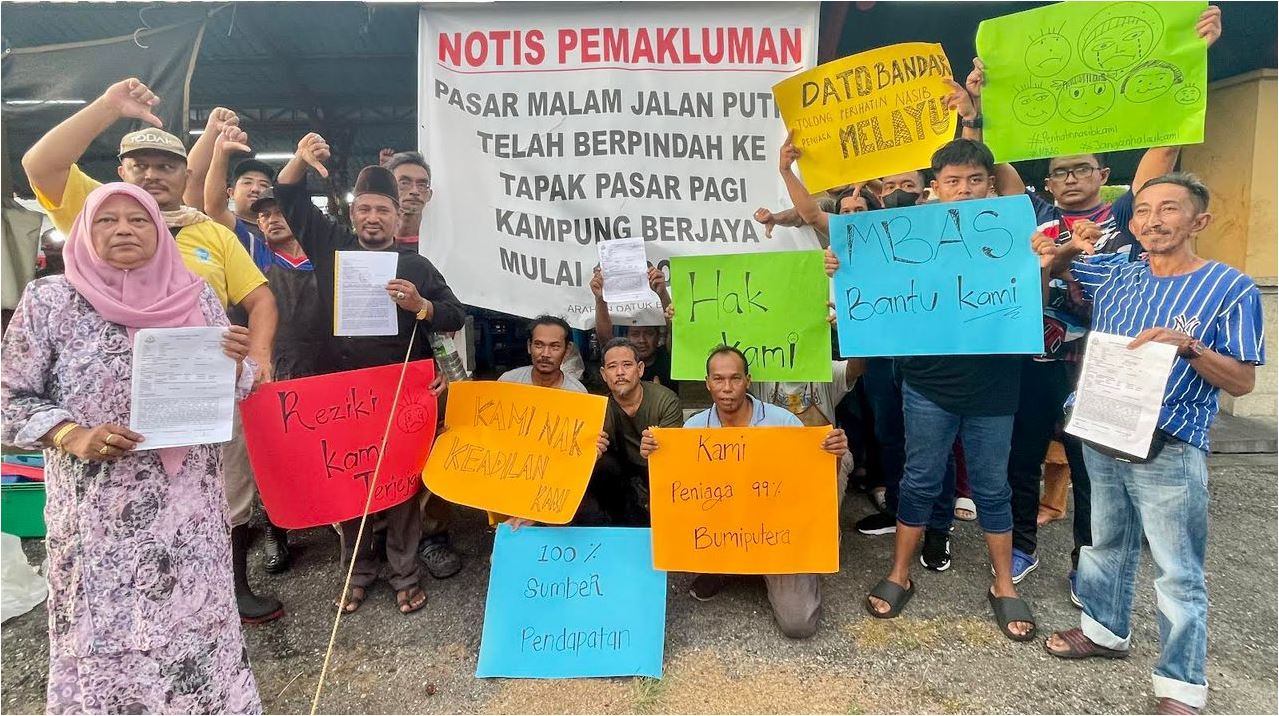 NOTIS PEMAKLUMAN
PASAR MALAM JALAN PUT
TELAH BERPINDAH KE
TAPAK PASAR PAGI
KAMPUNG BERJAYA
MULAI
ARAHAN DATUK
DATO BANDAR
TOLONG PERIHATIN NASIB
PENIAGA MELAYU
#Perihatinnasibkami
#MBAS #Janganhalaukami
MBAS
Bantu kami
Hak
kami
Reziki
kami
Terjejas
KAMI NAK
KEADILAN
KAMI
Kami
Peniaga 99%
Bumiputera
100 %
Sumber
Pendapatan